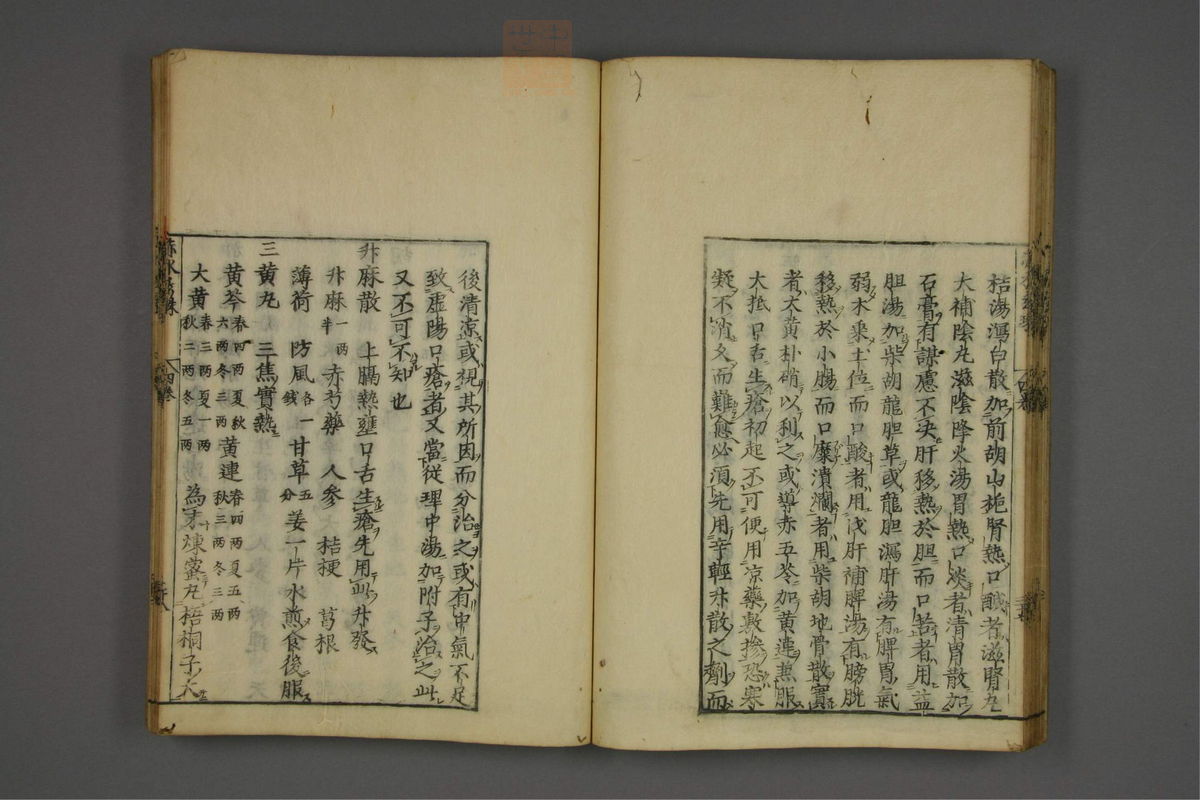 桔湯瀉白散加前胡山梔腎熱口醎者滋腎丸
大補陰丸滋陰降火湯胃熱口淡者清胃散加
石膏有謀慮不决肝移熱於胆而口苦者用益
胆湯加柴胡龍胆草或龍胆瀉肝湯有脾胃氣
弱木乘土位而口酸者用伐肝補脾湯有膀胱
移熱於小腸而口糜潰爛者用柴胡地骨散實
者大黃朴硝以利之或導赤五苓加黃連煎服
大抵口舌生瘡初起不可便用凉藥敷摻恐寒
凝不消久而難愈必須先用辛輕升散之劑而
後清凉或視其所因而分治之或有中氣不足
致虚陽口瘡者又當從理中湯加附子治之此
又不可不知也
升麻散 上膈熱壅口舌生瘡先用此升發
升麻一両半 赤芍藥 人参 桔梗 葛根
薄荷 防風各一錢 甘草五分 姜一片水煎食後服
三黄丸 三焦實熱
黄芩春四両夏秋六両冬三両 黄連春四両夏五両秋三両冬三両
大黄春三両夏一両秋二両冬五両 為末煉蜜丸梧桐子大
赤水玄珠
四卷